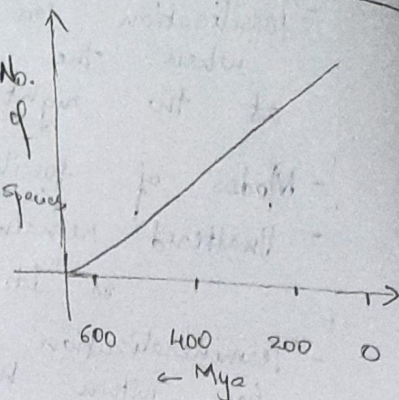 No.
of
species
600 400 200 0
← Mya